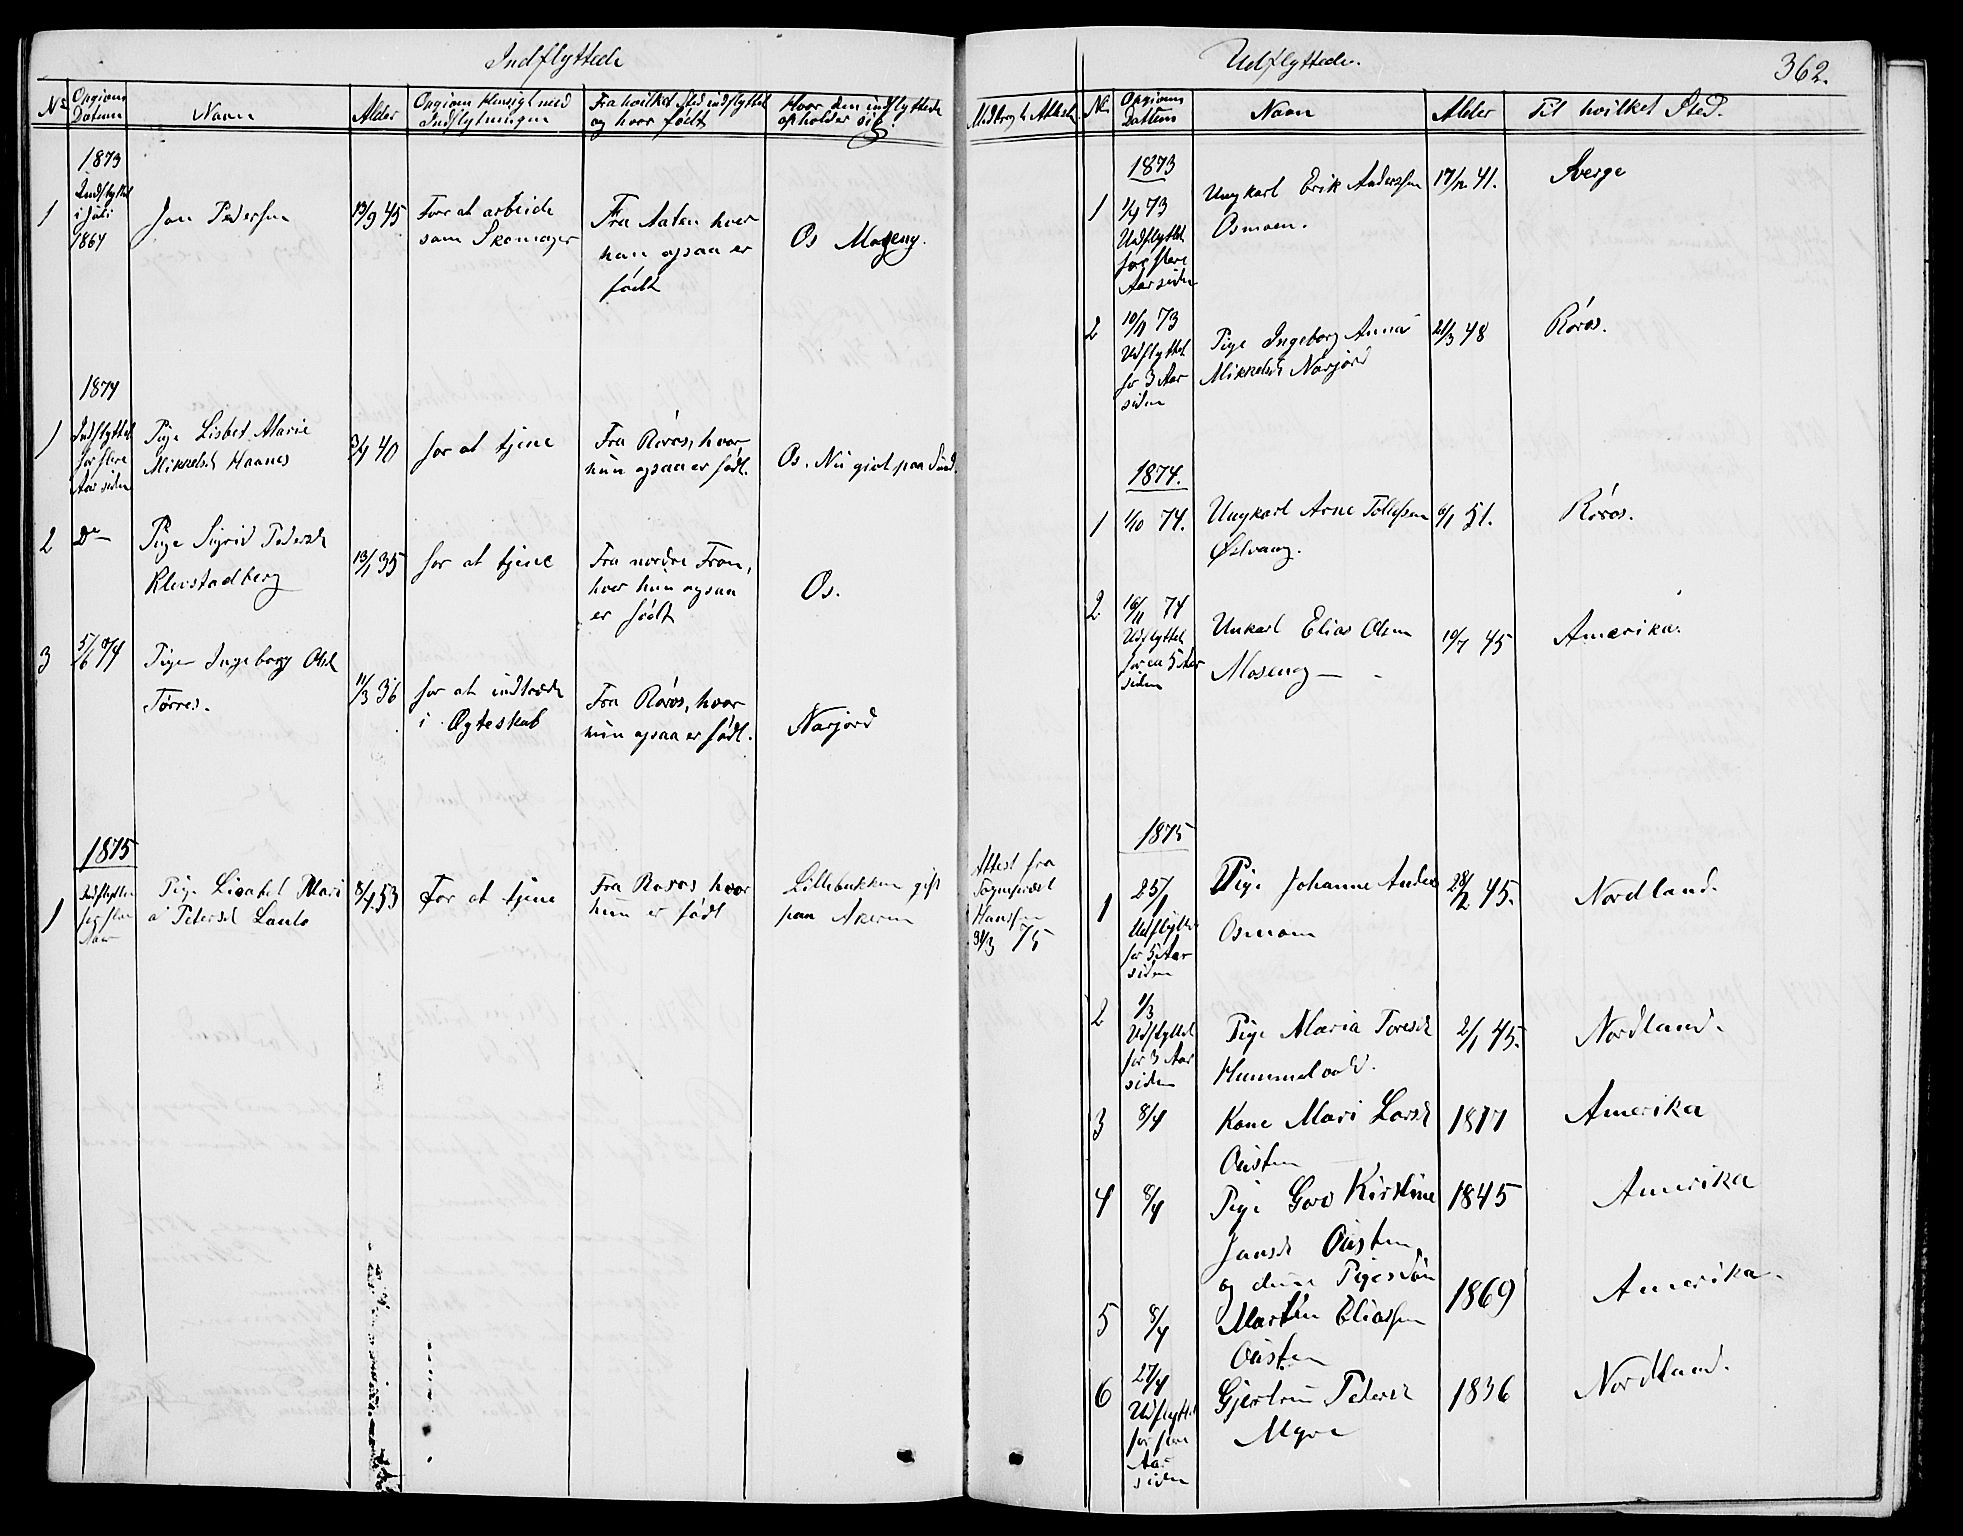 Indflyttede
No
Opgivns Datum
Navn
Alder
Opgiven Hensigt med Indflytningen
Fra hvilket Sted indflyttet og hvor født
Hvor den indflyttede opholder sig.
Medbragt Attest
1873
1
Indflyttet
i Juli
1864
Jon Pedersen
13/9 45
For at arbeide
som Skomager
Fra Aalen hvor
han ogsaa er
født
Os Moseng.
1874
1
Indflyttet
for flere
Aar siden
Pige Lisbet Marie
Mikkelsd Haanes
40
for at tjene
Fra Røros, hvor
hun ogsaa er født.
Os. Nu givt paa Sund.
2
Do
Pige Sigrid Pedersd
Klevstadberg
13/1 35
for at tjene
Fra nordre Fron,
hvor hun ogsaa
er født
Os.
3
5/6 74
Pige Ingeborg Olsd
Tørres.
11/3 36
for at indtræde
i Ægteskab
Fra Røros, hvor
hun ogsaa er født.
Narjord
1875
1
Indflyttet
for flere
Aar
Pige Lisabet Mari
a Pedersd
8/4 53
For at tjene
Fra Røros hvor
hun er født
Lillebukken gift
paa
Attest fra
Sogneprest
Hansen
31/3 75
Udflyttede.
362.
No
Opgivns Dattum
Navn
Alder
Til hvilket Sted.
1873
1
73
Udflyttet
for flere
Aar siden
Ungkarl Erik Anderssen
Osmoen.
17/12 41.
Sverge
2
10/11 73
Udflyttet
for 3 Aar
siden
Pige Ingeborg Anna
Mikkelsd Narjord
21/3 48
Røros.
1874.
1
1/10 74.
Ungkarl Arne Tollefsen
Østvang.
6/1 51.
Røros.
2.
16/11 74
Udflyttet
for ca 5 Aar
siden
Unkarl Elias Olsen
Moseng
19/7 45
Amerika.
1875
1
25/1
Udflyttet
for 5 Aar
siden
Pige Johanne Anders
Osmoen
28/2 45.
Nordland.
2
1/3
Udflyttet
for 3 Aar
siden
Pige Maria Toresd
Hummelvold.
2/1 45.
Nordland.
3
8/4
Kone Mari Larsd
Ousten
1817
Amerika
4
8/4
Pige Goro Kirstine
Jonsd Ousten
1845
Amerika
og denne Piges Søn
5
8/4
Martin Eliassen
Ousten
1869
Amerika.
6
27/4
Udflyttet
for flere
Aar
siden
Gjertrud Pedersd
Myre
1836
Nordland.